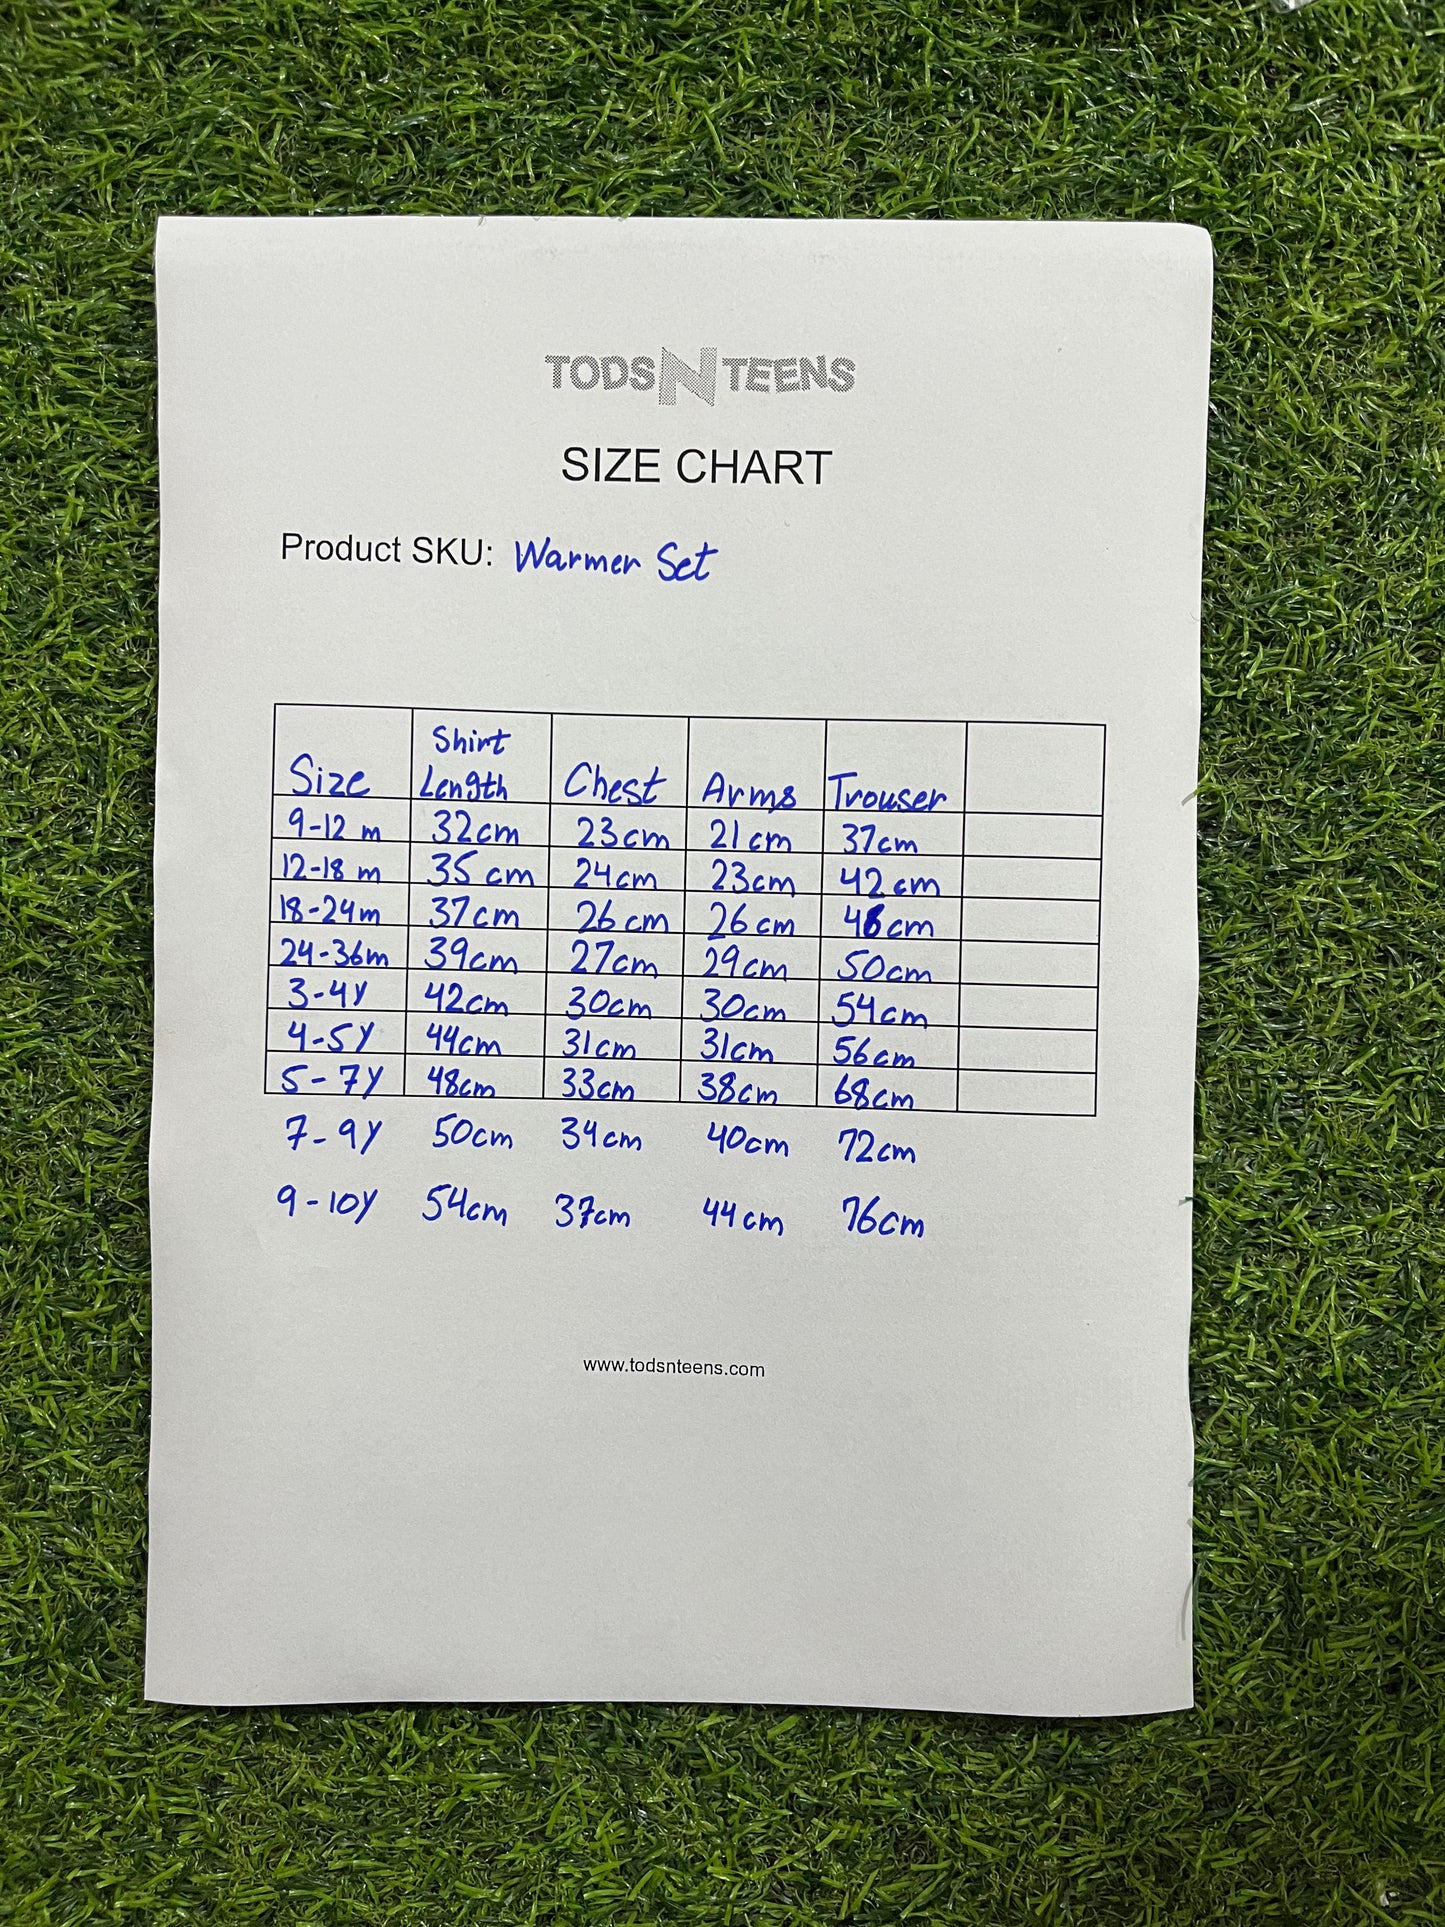 TODS N TEENS
SIZE CHART
Product SKU: Warmer Set
Size Shirt Length Chest Arms Trouser
9-12 m 32cm 23cm 21cm 37cm
12-18 m 35cm 24cm 23cm 42cm
18-24m 37cm 26cm 26cm cm
24-36m 39cm 27cm 29cm 50cm
3-4Y 42cm 30cm 30cm 54cm
4-5Y 44cm 31cm 31cm 56cm
5-7Y 48cm 33cm 38cm 68cm
7-9Y 50cm 34cm 40cm 72cm
9-10Y 54cm 37cm 44cm 76cm
www.todsnteens.com